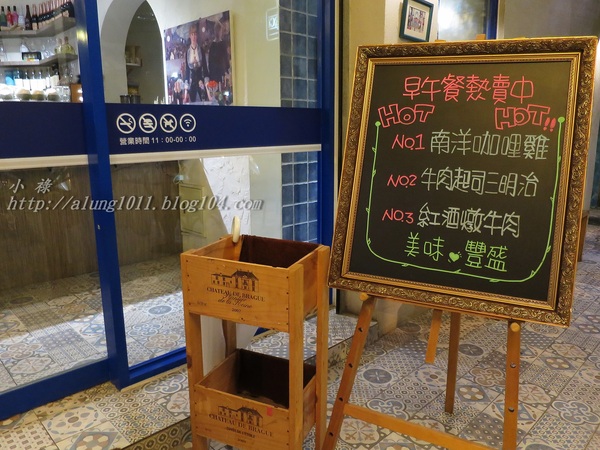 營業時間 11:00-00:00
小祿
http://alung1011.blog104.com
早午餐熱賣中
HOT HOT!!
NO1 南洋咖哩雞
NO.2 牛肉起司三明治
NO.3 紅酒燉牛肉
美味 豐盛
CHATEAU DE BRAGUE
CHATEAU DE BRAGUE